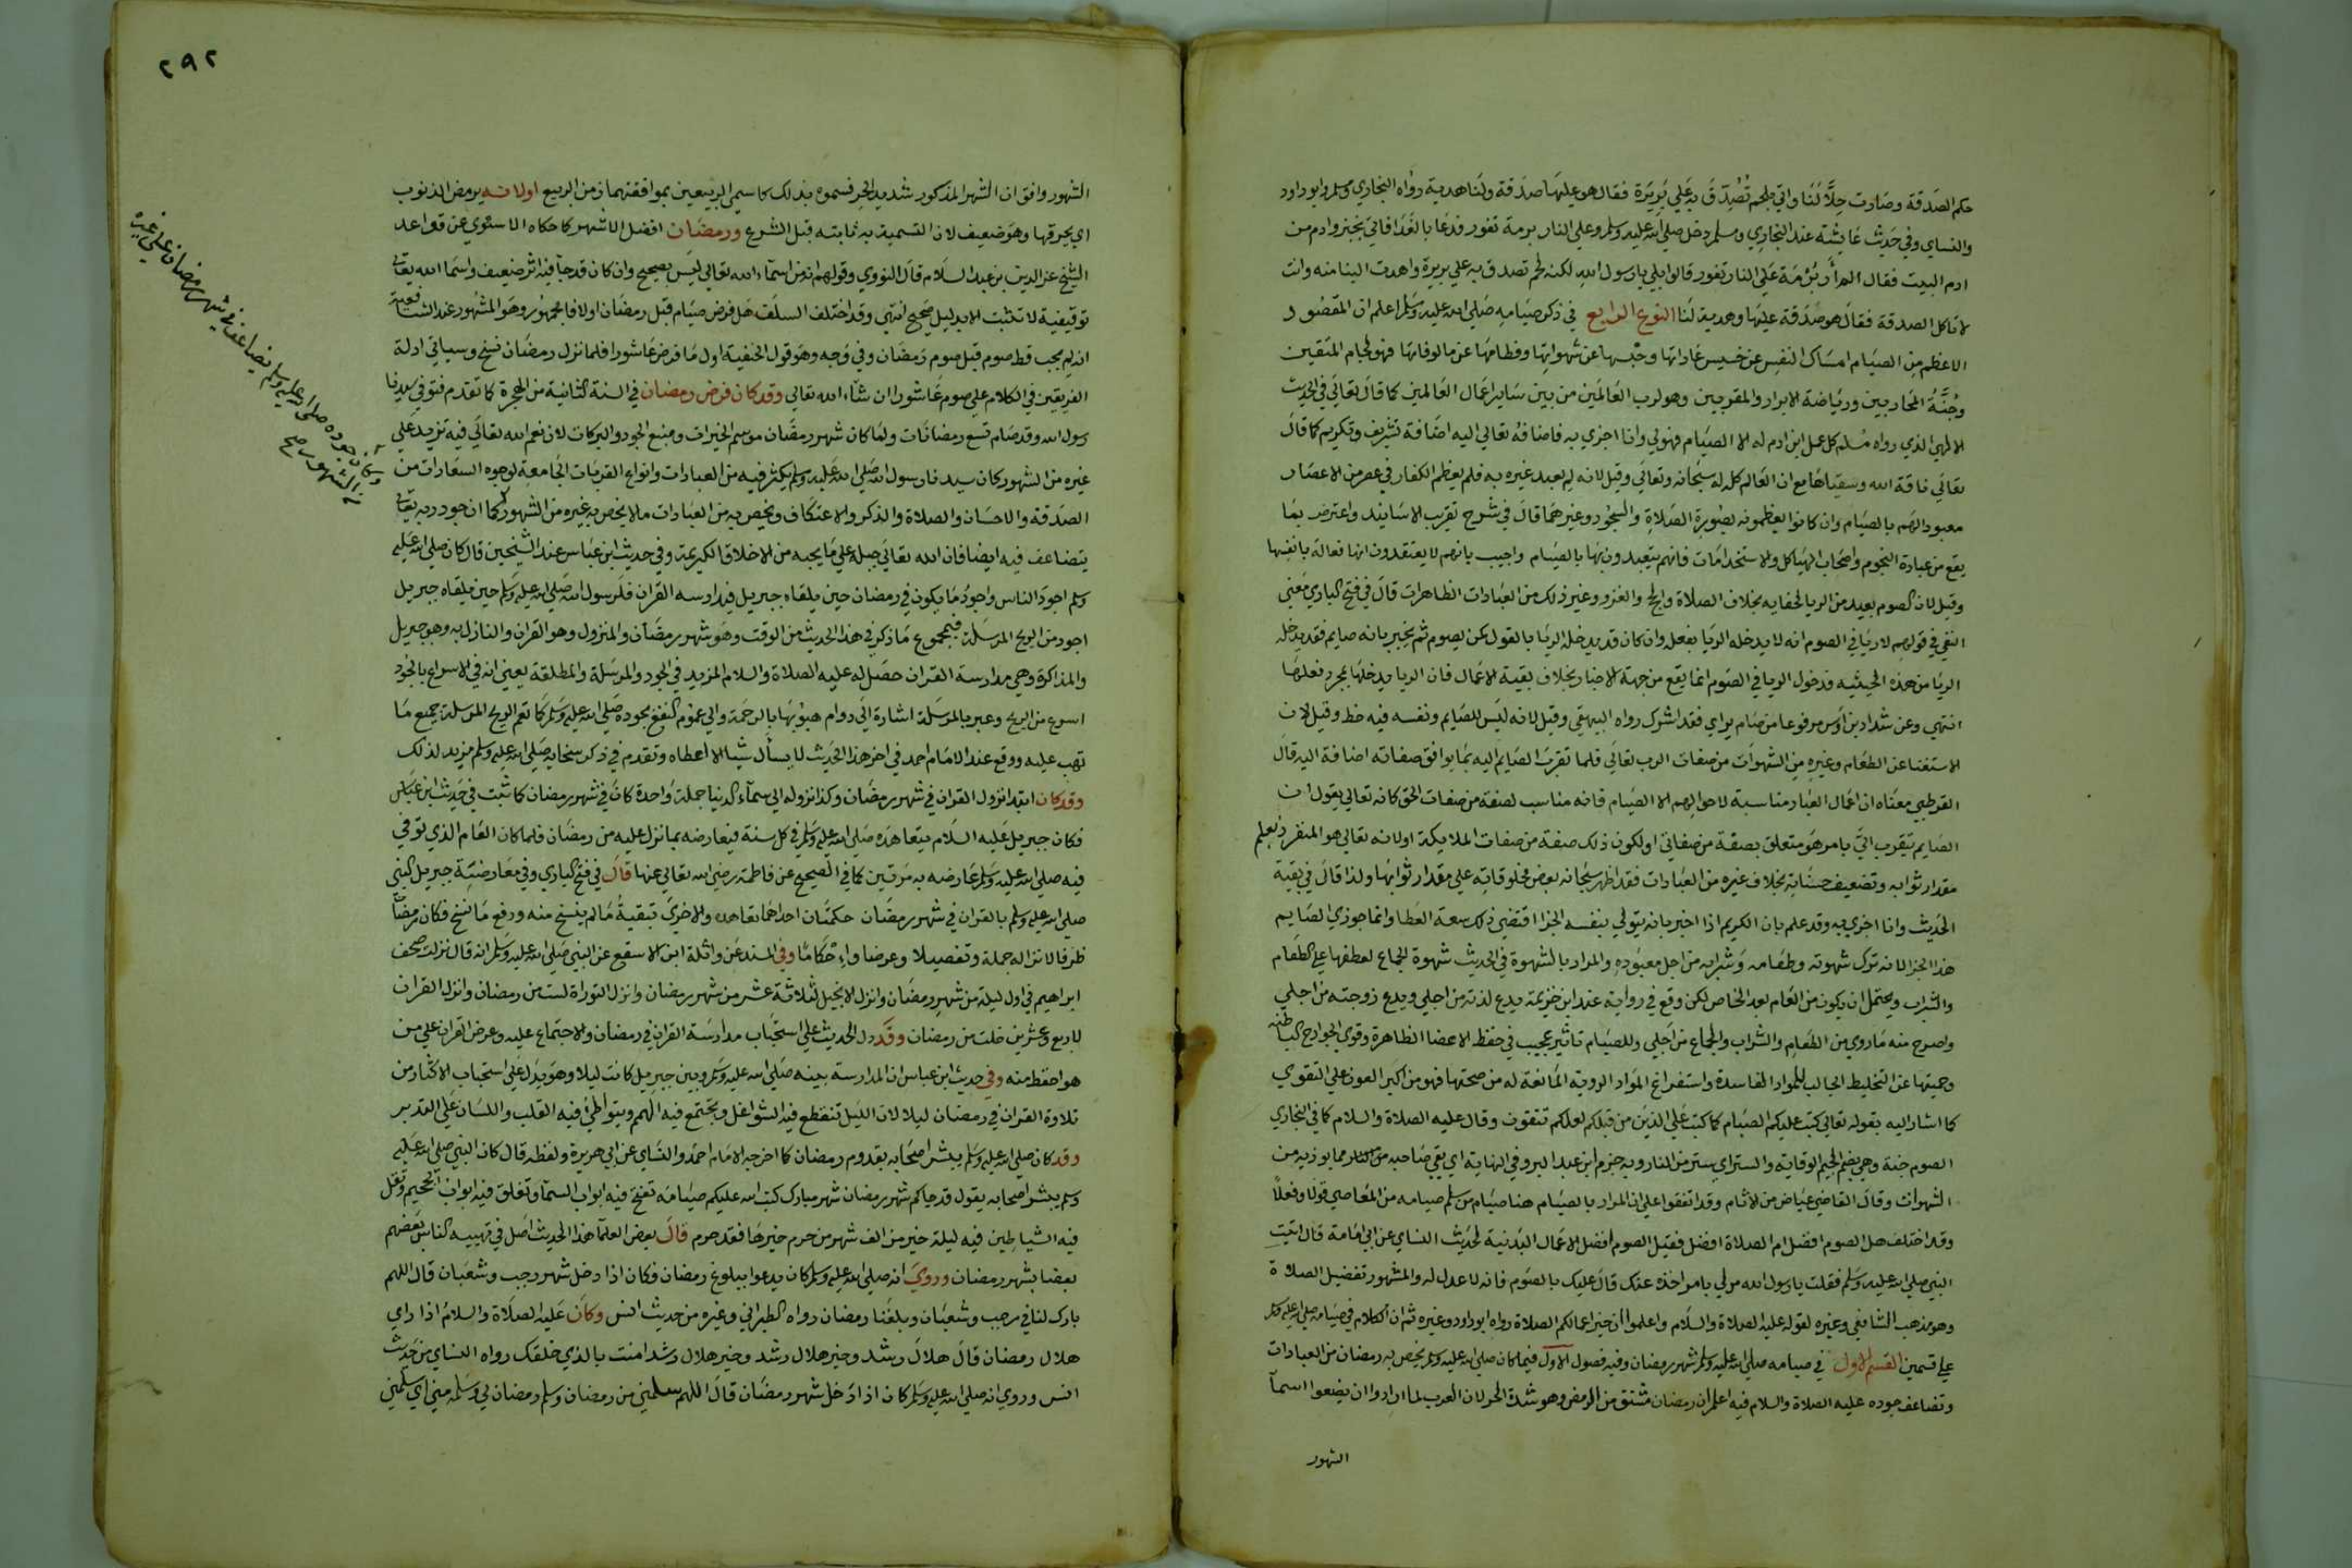 حكم الصدقة وصارت حلالا لنا واتي بلحم تصدق به علي بريرة فقال هو عليها صدقة ولنا هدية رواه البخاري ومسلم وابوداود
والنساي وفي حديث عايشة عند البخاري ومسلم دخل صلي الله عليه وسلم وعلي النار برمة تفور فدعا بالغدا فاتي بخبز وادم من
ادم البيت فقال الم أر برمة علي النار تفور قالوا بلي يا رسول الله لكنه لحم تصدق به علي بريرة واهدت الينا منه وانت
لا تاكل الصدقة فقال هو صدقة عليها وهدية لنا النوع الرابع في ذكر صيامه صلي الله عليه وسلم اعلم ان المقصود
الاعظم من الصيام امساك النفس عن خسيس عاداتها وحبسها عن شهواتها وفطامها عن مالوفاتها فهو لجام المتقين
وجنة المحاربين ورياضة الابرار والمقربين وهو لرب العالمين من بين ساير اعمال العالمين كما قال تعالي في الحديث
الالهي الذي رواه مسلم كل عمل ابن ادم له الا الصيام فهو لي وانا اجزي به فاضافه تعالي اليه اضافة تشريف وتكريم كما قال
تعالي ناقة الله وسقياها مع ان العالم كله له سبحانه وتعالي وقيل لانه لم يعبد غيره به فلم يعظم الكفار في عصر من الاعصار
معبودا لهم بالصيام وان كانوا يعظمونه بصورة الصلاة والسجود وغيرهما قال في شرح تقريب الاسانيد واعترض بما
يقع من عبادة النجوم واصحاب الهياكل والاستخدامات فانهم يتعبدون بها بالصيام واجيب بانهم لا يعتقدون انها فعالة بانفسها
وقيل لان الصوم بعيد من الريا لخفايه بخلاف الصلاة والحج والغزو وغير ذلك من العبادات الظاهرات قال في فتح الباري معني
النفي في قولهم لا ريا في الصوم انه لا يدخله الريا بفعله وان كان قد يدخله الريا بالقول كمن يصوم ثم يخبر بانه صايم فقد يدخله
الريا من هذه الحيثيه فدخول الريا في الصوم انما يقع من جهة الاخبار بخلاف بقية الاعمال فان الريا يدخلها بمجرد فعلها
انتهي وعن شداد بن اوس مرفوعا من صام يراي فقد اشرك رواه البيهقي وقيل لانه ليس للصايم ونفسه فيه حظ وقيل لان
الاستغنا عن الطعام وغيره من الشهوات من صفات الرب تعالي فلما تقرب الصايم اليه بما يوافق صفاته اضافة اليه قال
القرطبي معناه ان اعمال العباد مناسبة لاحوالهم الا الصيام فانه مناسب لصفة من صفات الحق كانه تعالي يقول ان
الصايم يتقرب الي بامر هو متعلق بصفة من صفاتي او لكون ذلك صفة من صفات الملايكة او لانه تعالي هو المنفرد بعلم
مقدار ثوابه وتضعيف حسناته بخلاف غيره من العبادات فقد اظهر سبحانه بعض مخلوقاته علي مقدار ثوابها ولذا قال في بقية
الحديث وانا اجزي به وقد علم بان الكريم اذا اخبر بانه يتولي بنفسه الجزا اقتضي ذلك سعة العطا وانما جوزي الصايم
هذا الجزا لانه ترك شهوته وطعامه وشرابه من اجل معبوده والمراد بالشهوة في الحديث شهوة الجماع لعطفها علي الطعام
والشراب ويحتمل ان يكون من العام بعد الخاص لكن وقع في رواية عند ابن خزيمة يدع لذته من اجلي ويدع زوجته من اجلي
واصرح منه ما روي من الطعام والشراب والجماع من اجلي وللصيام تاثير عجيب في حفظ الاعضا الظاهرة وقوي الجوارح الباطنه
وحميتها عن التخليط الجالب للمواد الفاسدة واستفراغ المواد الرديه المانعة له من صحتها فهو من اكبر العون علي التقوي
كما اشار اليه بقوله تعالي كتب عليكم الصيام كما كتب علي الذين من قبلكم لعلكم تتقون وقال عليه الصلاة والسلام كما في البخاري
الصوم جنة وهي بضم الجيم الوقاية والستر اي ستر من النار وبه جزم ابن عبد البر وفي النهاية اي يقي صاحبه مما يوذيه من
الشهوات وقال القاضي عياض من الاثام وقد اتفقوا علي ان المراد بالصيام هنا صيام من سلم صيامه من المعاصي قولا وفعلا
وقد اختلف هل الصوم افضل ام الصلاة افضل فقيل الصوم افضل الاعمال البدنية لحديث النساي عن ابي امامة قال اتيت
النبي صلي الله عليه وسلم فقلت يا رسول الله مرني بامر اخذه عنك قال عليك بالصوم فانه لا عدل له والمشهور تفضيل الصلاة
وهو مذهب الشافعي وغيره لقوله عليه الصلاة والسلام واعلموا ان خير اعمالكم الصلاة رواه ابوداود وغيره ثم ان الكلام في صيامه صلي الله عليه وسلم
علي قسمين القسم الاول في صيامه صلي الله عليه وسلم شهر رمضان وفيه فصول الاول فيما كان صلي الله عليه وسلم يخص به رمضان من العبادات
وتضاعف جوده عليه الصلاة والسلام فيه اعلم ان رمضان مشتق من الرمض وهو شدة الحر لان العرب لما ارادوا ان يضعوا اسما
الشهور
٢٩٢
الشهور وافق ان الشهر المذكور شديد الحر فسموه بذلك كما سمي الربيعين بموافقتهما زمن الربيع اولانه يرمض الذنوب
اي يحرقها وهو ضعيف لان التسمية به ثابتة قبل الشرع ورمضان افضل الاشهر كما حكاه الاسنوي عن قواعد
الشيخ عز الدين بن عبد السلام قال النووي وقولهم انه من اسماء الله تعالي ليس بصحيح وان كان قد جا فيه اثر ضعيف واسما الله تعالي
توقيفية لا تثبت الا بدليل صحيح انتهي وقد اختلف السلف هل فرض صيام قبل رمضان اولا فالجمهور وهو المشهور عند الشافعية
انه لم يجب قط صوم قبل صوم رمضان وفي وجه وهو قول الحنفية اول ما فرض عاشورا فلما نزل رمضان نسخ وسياتي ادلة
الفريقين في الكلام علي صوم عاشورا ان شاء الله تعالي وقد كان فرض رمضان في السنة الثانية من الهجرة كما تقدم فتوفي سيدنا
رسول الله وقد صام تسع رمضانات ولما كان شهر رمضان موسم الخيرات ومنبع الجود والبركات لان نعم الله تعالي فيه تزيد علي
غيره من الشهور كان سيدنا رسول الله صلي الله عليه وسلم يكثر فيه من العبادات وانواع القربات الجامعة لوجوه السعادات من
الصدقة والاحسان والصلاة والذكر والاعتكاف ويخص به من العبادات ما لا يخص به غيره من الشهور كما ان جود ربه تعالي
يتضاعف فيه ايضا فان الله تعالي جبله علي ما يحبه من الاخلاق الكريمة وفي حديث ابن عباس عند الشيخين قال كان صلي الله عليه
وسلم اجود الناس واجود ما يكون في رمضان حين يلقاه جبريل فيدارسه القران فلرسول الله صلي الله عليه وسلم حين يلقاه جبريل
اجود من الريح المرسلة فبمجموع ما ذكر في هذا الحديث من الوقت وهو شهر رمضان والمنزول وهو القران والنازل به وهو جبريل
والمذاكرة وهي مدارسة القران حصل له عليه الصلاة والسلام المزيد في الجود والمرسلة والمطلقة يعني انه في الاسراع بالجود
اسرع من الريح وعبر بالمرسلة اشارة الي دوام هبوبها بالرحمة والي عموم النفع بجوده صلي الله عليه وسلم كما تعم الريح المرسلة جميع ما
تهب عليه ووقع عند الامام احمد في اخر هذا الحديث لا يسأل شيا الا اعطاه وتقدم في ذكر سخايه صلي الله عليه وسلم مزيد لذلك
وقد كان ابتدا نزول القران في شهر رمضان وكذا نزوله الي سماء الدنيا جملة واحدة كان في شهر رمضان كما ثبت في حديث ابن عباس
فكان جبريل عليه السلام يتعاهده صلي الله عليه وسلم في كل سنة فيعارضه بما نزل عليه من رمضان فلما كان العام الذي توفي
فيه صلي الله عليه وسلم عارضه به مرتين كما في الصحيح عن فاطمة رضي الله تعالي عنها قال في فتح الباري وفي معارضة جبريل النبي
صلي الله عليه وسلم بالقران في شهر رمضان حكمتان احداهما تعاهده والاخري تبقية ما لم ينسخ منه ورفع ما نسخ فكان رمضان
ظرفا لانزاله جملة وتفصيلا وعرضا واحكاما وفي المسند عن واثلة ابن الاسقع عن النبي صلي الله عليه وسلم انه قال نزلت صحف
ابراهيم في اول ليلة من شهر رمضان وانزل الانجيل لثلاثة عشر من شهر رمضان وانزل التوراة لست من رمضان وانزل القران
لاربع وعشرين خلت من رمضان وقد دل الحديث علي استحباب مدارسة القران في رمضان والاجتماع عليه وعرض القران علي من
هو احفظ منه وفي حديث ابن عباس ان المدارسة بينه صلي الله عليه وسلم وبين جبريل كانت ليلا وهو يدل علي استحباب الاكثار من
تلاوة القران في رمضان ليلا لان الليل تنقطع فيه الشواغل وتجتمع فيه الهمم ويتواطي فيه القلب واللسان علي التدبر
وقد كان صلي الله عليه وسلم يبشر اصحابه بقدوم رمضان كما اخرجه الامام احمد والنساي عن ابي هريرة ولفظه قال كان النبي صلي الله عليه
وسلم يبشر اصحابه يقول قد جاكم شهر رمضان شهر مبارك كتب الله عليكم صيامه تفتح فيه ابواب السما وتغلق فيه ابواب الجحيم وتغل
فيه الشياطين فيه ليلة خير من الف شهر من حرم خيرها فقد حرم قال بعض العلما هذا الحديث اصل في تهنيه الناس بعضهم
بعضا بشهر رمضان وروي انه صلي الله عليه وسلم كان يدعوا ببلوغ رمضان فكان اذا دخل شهر رجب وشعبان قال اللهم
بارك لنا في رجب وشعبان وبلغنا رمضان رواه الطبراني وغيره من حديث انس وكان عليه الصلاة والسلام اذا راي
هلال رمضان قال هلال رشد وخير هلال رشد وخير هلال رشد امنت بالذي خلقك رواه النساي من حديث
انس وروي انه صلي الله عليه وسلم كان اذا دخل شهر رمضان قال اللهم سلمني من رمضان وسلم رمضان لي وسلمه مني اي سلمني
وكان جوده صلي الله عليه وسلم يتضاعف في شهر رمضان علي غيره
من الشهور صح